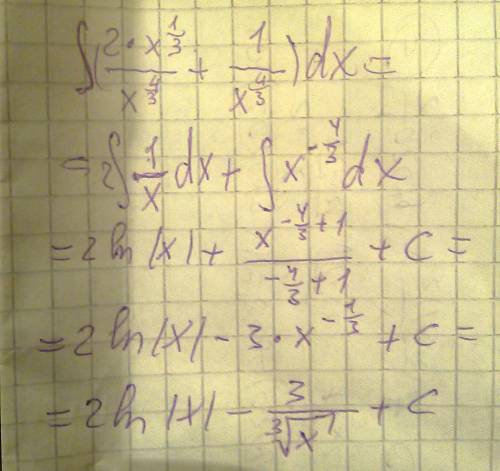 ∫(2·x^(1/3)/x^(4/3) + 1/x^(4/3))dx =
= 2∫1/x dx + ∫x^(-4/3) dx
= 2 ln|x| + x^(-4/3+1)/(-4/3+1) + C =
= 2 ln|x| - 3·x^(-1/3) + C =
= 2 ln|x| - 3/∛x + C